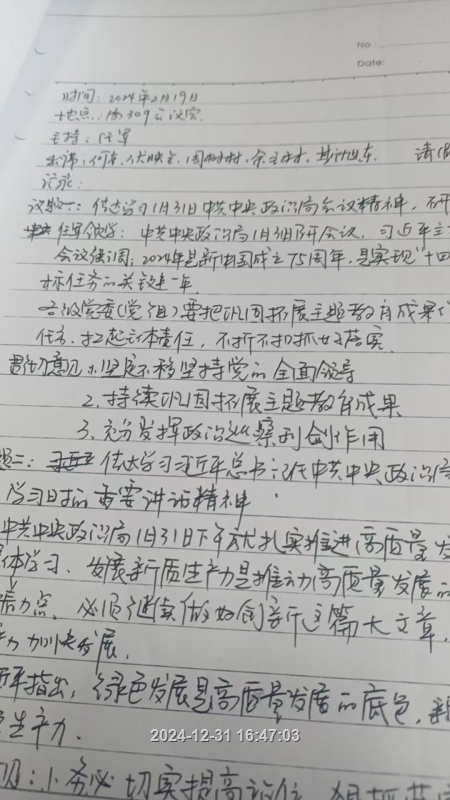 No.
Date:
时间：2024年2月19日
地点：局309会议室
主持：任军
记录：
议题一：传达学习1月31日中共中央政治局会议精神，不研
任军领学：中共中央政治局1月31日召开会议，习近平主
会议强调：2024年是新中国成立75周年，是实现“十四
标任务的关键一年.
各级党委(党组)要把巩固拓展主题教育成果
任务，扛起主体责任，不折不扣抓好落实.
贯彻意见：1.坚定不移坚持党的全面领导
2.持续巩固拓展主题教育成果
3.充分发挥政治巡察利剑作用
题二：传达学习习近平总书记在中共中央政治局
学习时的重要讲话精神
中共中央政治局1月31日下午就扎实推进高质量发
体学习．发展新质生产力是推动高质量发展的
着力点．必须继续做好创新这篇大文章，
力加快发展.
平指出，绿色发展是高质量发展的底色，新
生产力.
见：1.务必切实提高站位
2024-12-31 16:47:03